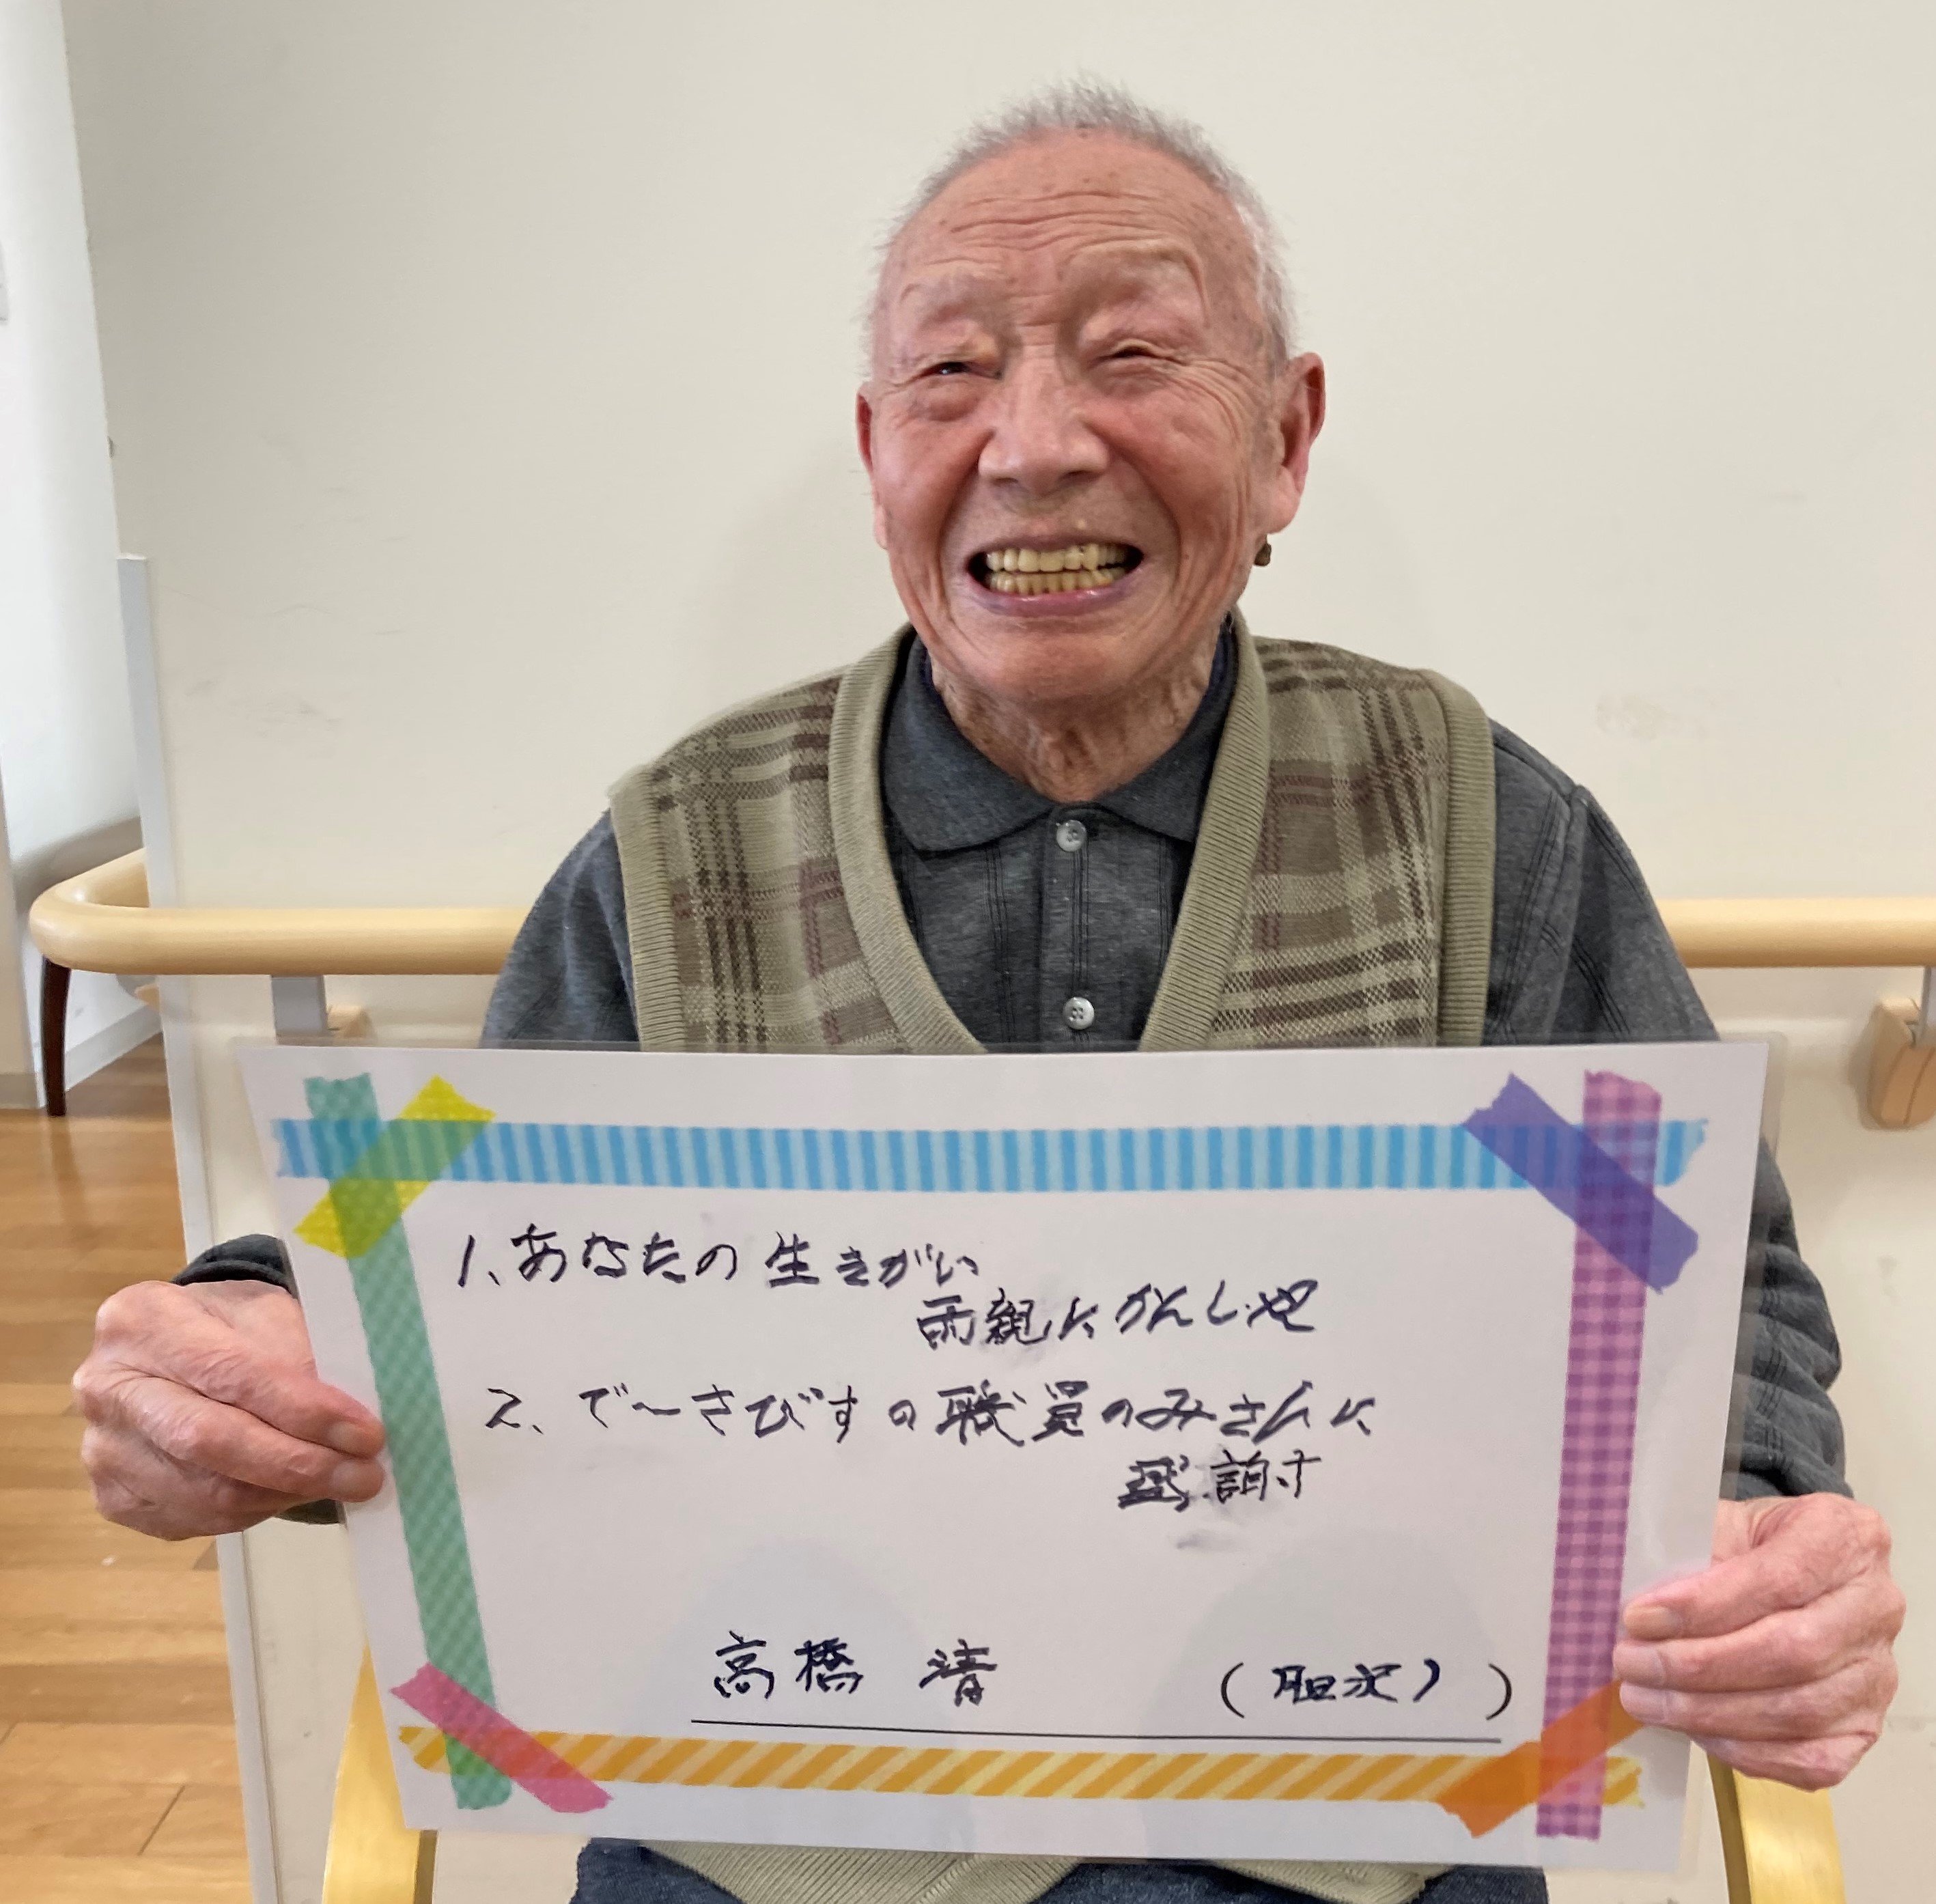 1、あなたの生きがい
両親にかんしゃ
2、で～さびすの職員のみさんに
感謝す
高橋 清 (胆沢)